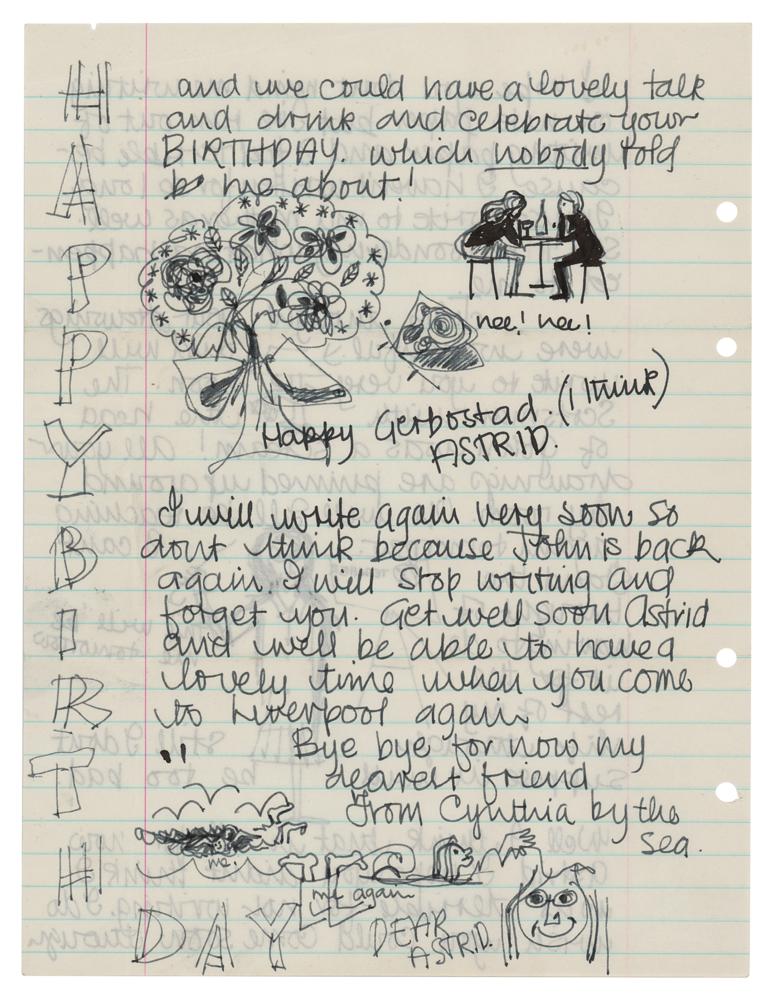 and we could have a lovely talk
and drink and celebrate your
BIRTHDAY. which nobody told
me about!
nee! nee!
Happy Gerbostad. (I think)
ASTRID.
I will write again very soon so
dont think because John is back
again. I will stop writing and
forget you. Get well soon Astrid
and we'll be able to have a
lovely time when you come
to Liverpool again
Bye bye for now my
dearest friend
From Cynthia by the
sea.
me.
me again
DEAR
ASTRID.
H
A
P
P
Y
B
I
R
T
H
DAY